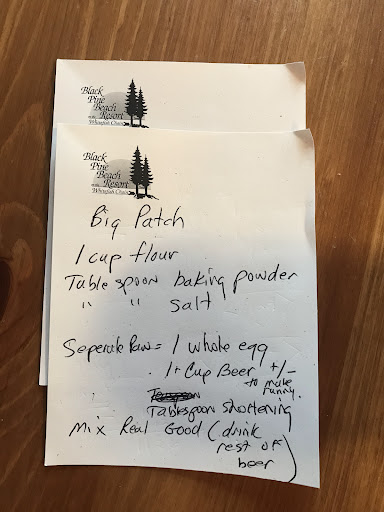 Black
Pine
Beach
Resort
on the
Whitefish Chain
Black
Pine
Beach
Resort
on the
Whitefish Chain
Big Patch
1 cup flour
Table spoon baking powder
" " salt
Seperate Paw = 1 whole egg
1+ Cup Beer +/-
to make
runny.
Tablespoon shortening
Mix Real Good (drink
rest of
beer)